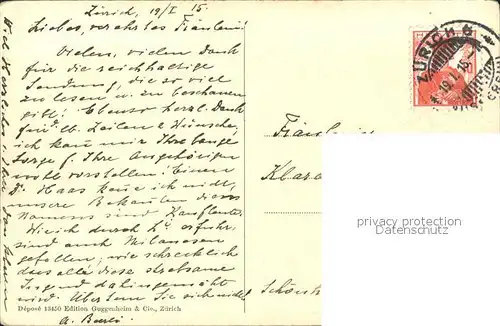 Zürich, 19/I 15.
Liebes, verehrtes Fräulein!
Vielen, vielen Dank
für die reichhaltige
Sendung, die so viel
zu lesen u. zu beschauen
gibt! Ebenso herzl. Dank
für lb. Zeilen & Wünsche,
ich kann mir Ihre bange
Sorge f. Ihre Angehörigen
wohl vorstellen! Einen
Dr. Haas kenne ich nicht,
unsere Bekannten dieses
Namens sind Kaufleute.
Wie ich durch erfuhr,
sind auch
gefallen; wie schrecklich
dass alle diese strebsame
Jugend dahingemäht
wird. Übertun Sie sich nicht
A.
Déposé 15450 Edition Guggenheim & Cie., Zürich
ZÜRICH 6
Fräulein
Klara
privacy protection
AKPool.de
Schöntal